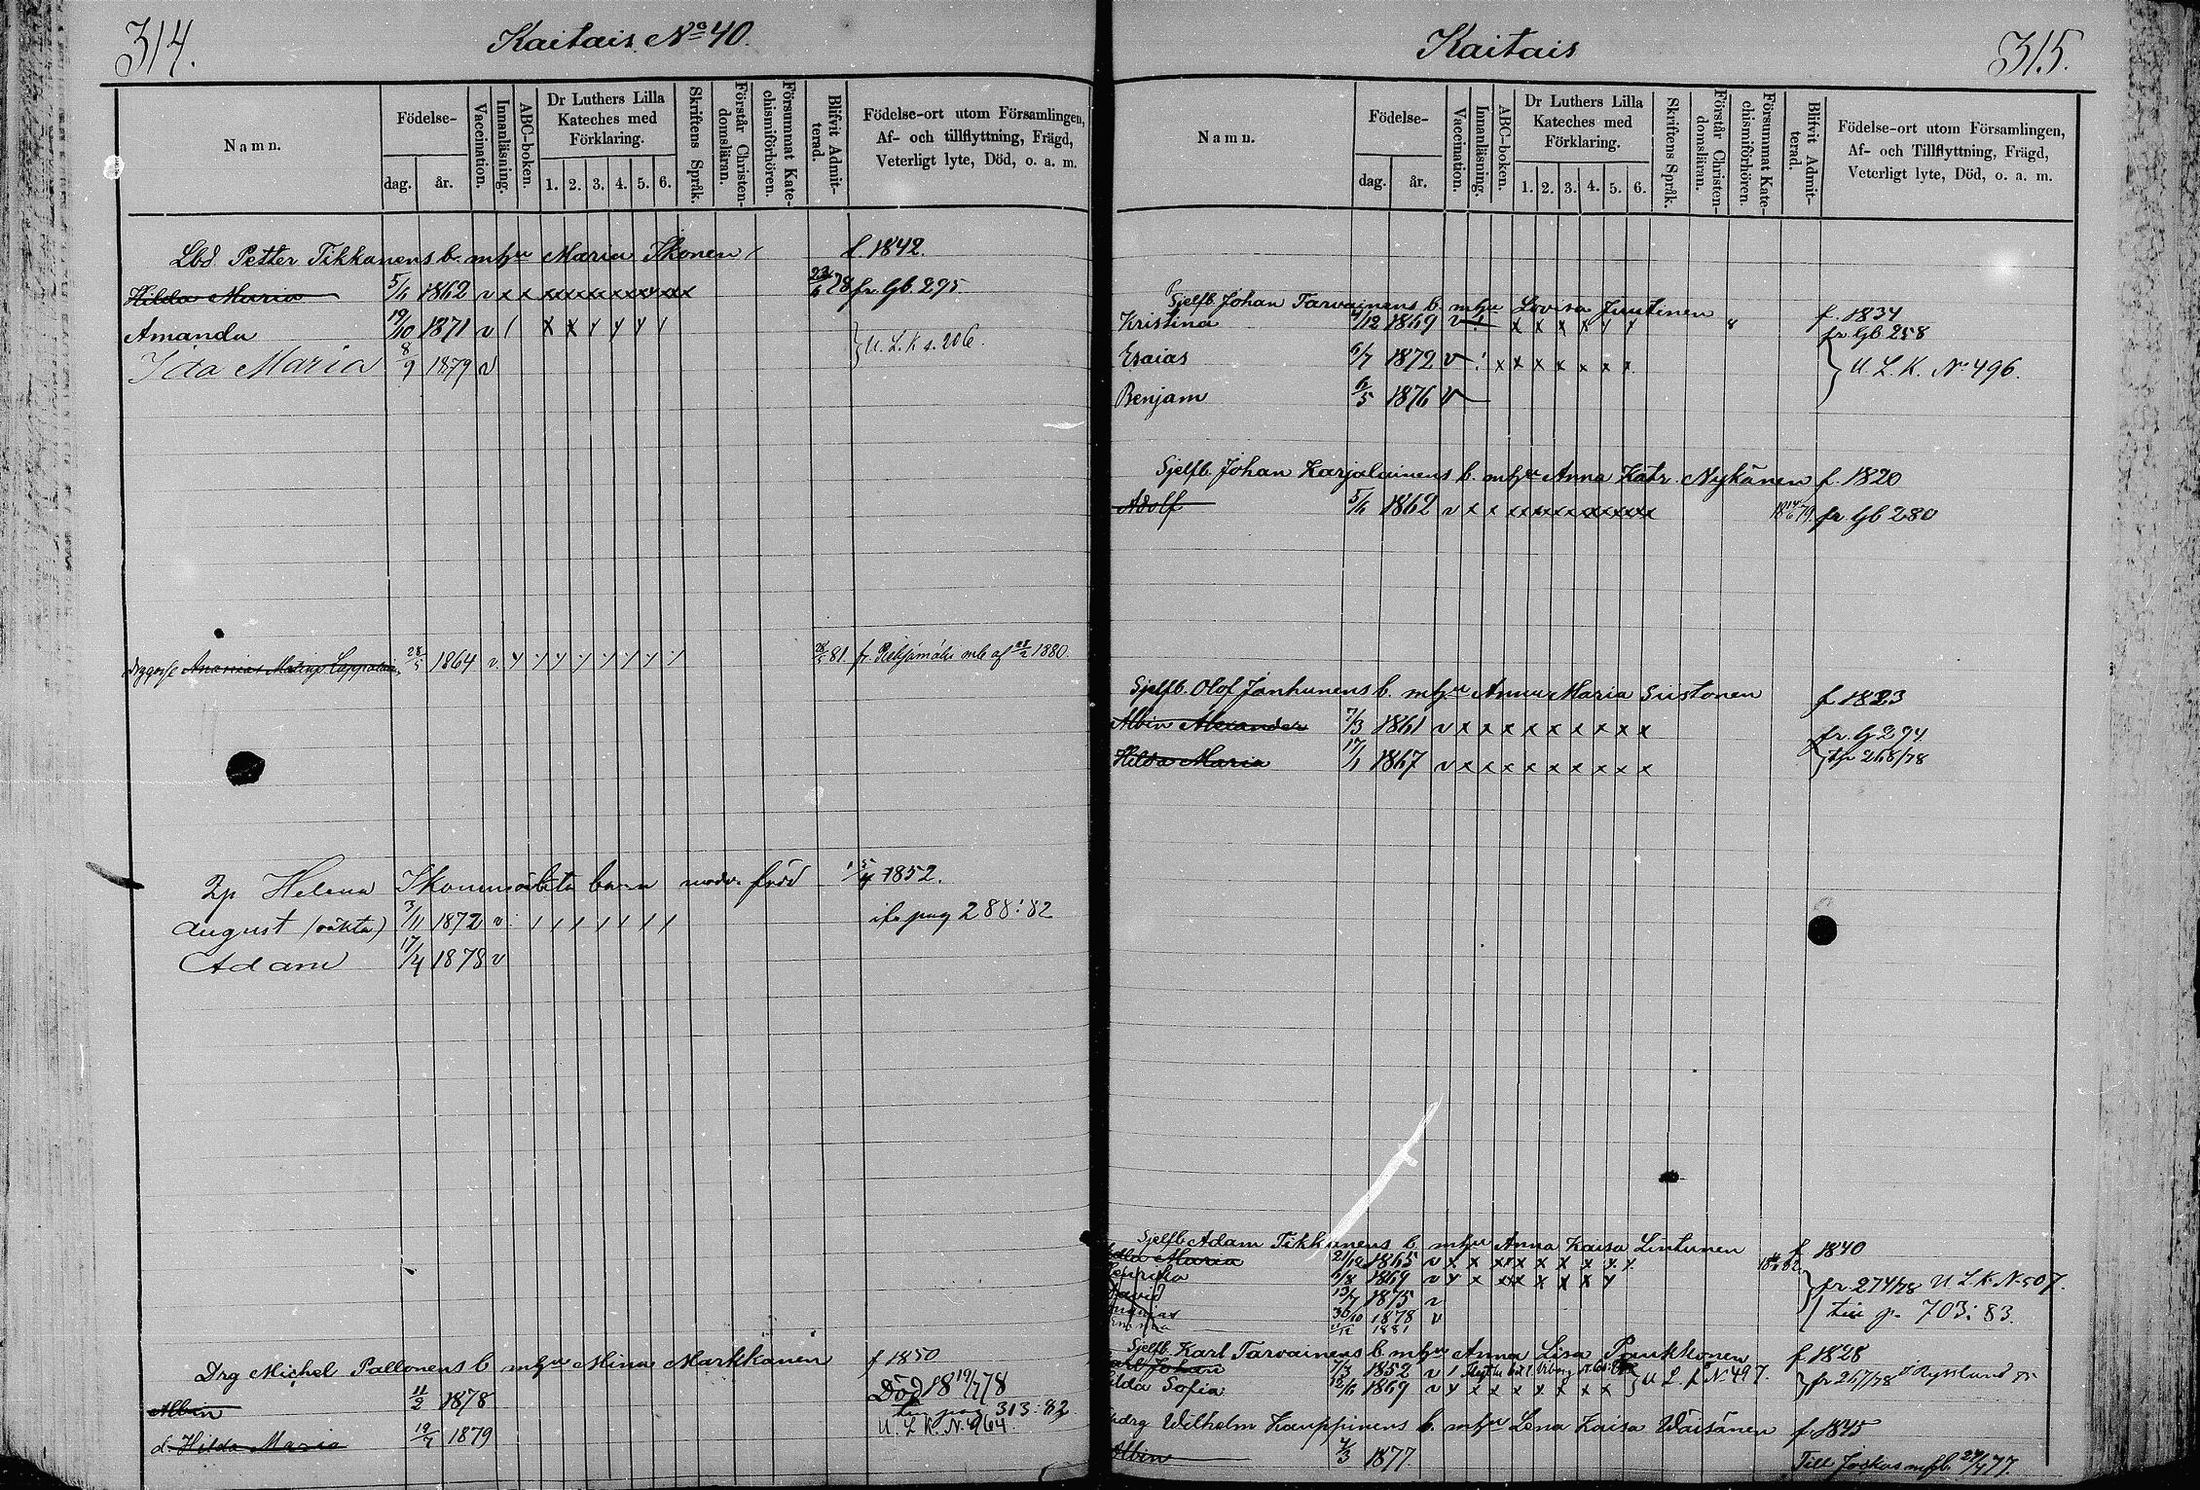 314.
Kaitais No 40.
Namn.
Födelse-
dag.
år.
Vaccination.
Innanläsning.
ABC-boken.
Dr Luthers Lilla Kateches med Förklaring.
1. 2. 3. 4. 5. 6.
Skriftens Språk.
Förstår Christen-domsläran.
Försummat Kate-chismiförhören.
Blifvit Admit-terad.
Födelse-ort utom Församlingen, Af- och tillflyttning, Frägd, Veterligt lyte, Död, o. a. m.
Lbd. Petter Tikkanens b. m hu Maria Ikonen f. 1842.
Hilda Maria 5/6 1862 v x x x x x x x x x 78 fr. Gb. 295
Amanda 19/10 1871 v / x x y y y / U. L. K s. 206.
Ida Maria 8/9 1879 v
1864 v. 81. fr. mb af 1880
Helena Ikonens oäkta barn modr. född 1852.
August (oäkta) 3/11 1872 v / / / / / / / pag 288:82
Adam 17/4 1878 v
Drg Michel Pallonens b m hu Mina Markkanen f 1850
Albin 11/2 1878 Död 18 19/7 78
d. Hilda Maria 19/7 1879 pag 313:82
U. L. K. N. 464.
Kaitais
315.
Namn.
Födelse-
dag.
år.
Vaccination.
Innanläsning.
ABC-boken.
Dr Luthers Lilla Kateches med Förklaring.
1. 2. 3. 4. 5. 6.
Skriftens Språk.
Förstår Christen-domsläran.
Försummat Kate-chismiförhören.
Blifvit Admit-terad.
Födelse-ort utom Församlingen, Af- och Tillflyttning, Frägd, Veterligt lyte, Död, o. a. m.
Sjelfb. Johan Tarvainens b. m hu Lovisa Juutinen f. 1834
Kristina 1869 v x x x x y y fr. Gb 258
Esaias 6/7 1872 v x x x x x x x U. L. K. No 496.
Benjam 6/5 1876 v
Sjelfb. Johan Karjalainens b. m hu Anna Katr. Nykänen f. 1820
Adolf 5/6 1862 v x x x x x x x x x 79. fr. Gb 280
Sjelfb. Olof Janhunens b. m hu Anna Maria Siistonen f 1823
Albin Alexander 7/3 1861 v x x x x x x x x x fr. G 294
Hilda Maria 17/1 1867 v x x x x x x x x x 268/78
Sjelfb. Adam Tikkanens b. m hu Anna Kaisa Lintunen f 1840
Maria 21/12 1865 v x x x x x x x y y 82
6/8 1869 v y x x x x x x y fr. 274/78 U L K N 507.
David 13/7 1875 v
30/10 1878 v p. 703:83.
1881
Sjelfb. Karl Tarvainens b m hu Anna Lisa Pankkonen f 1828
Karl Johan 7/3 1852 v U. L. K No 497. fr 267/78
Sofia 12/6 1869 v y x x x x x x x
Wilhelm Kauppinens b. m hu Lena Kaisa Wäisänen f 1845
Albin 4/3 1877. Till Jockas mfb 77.